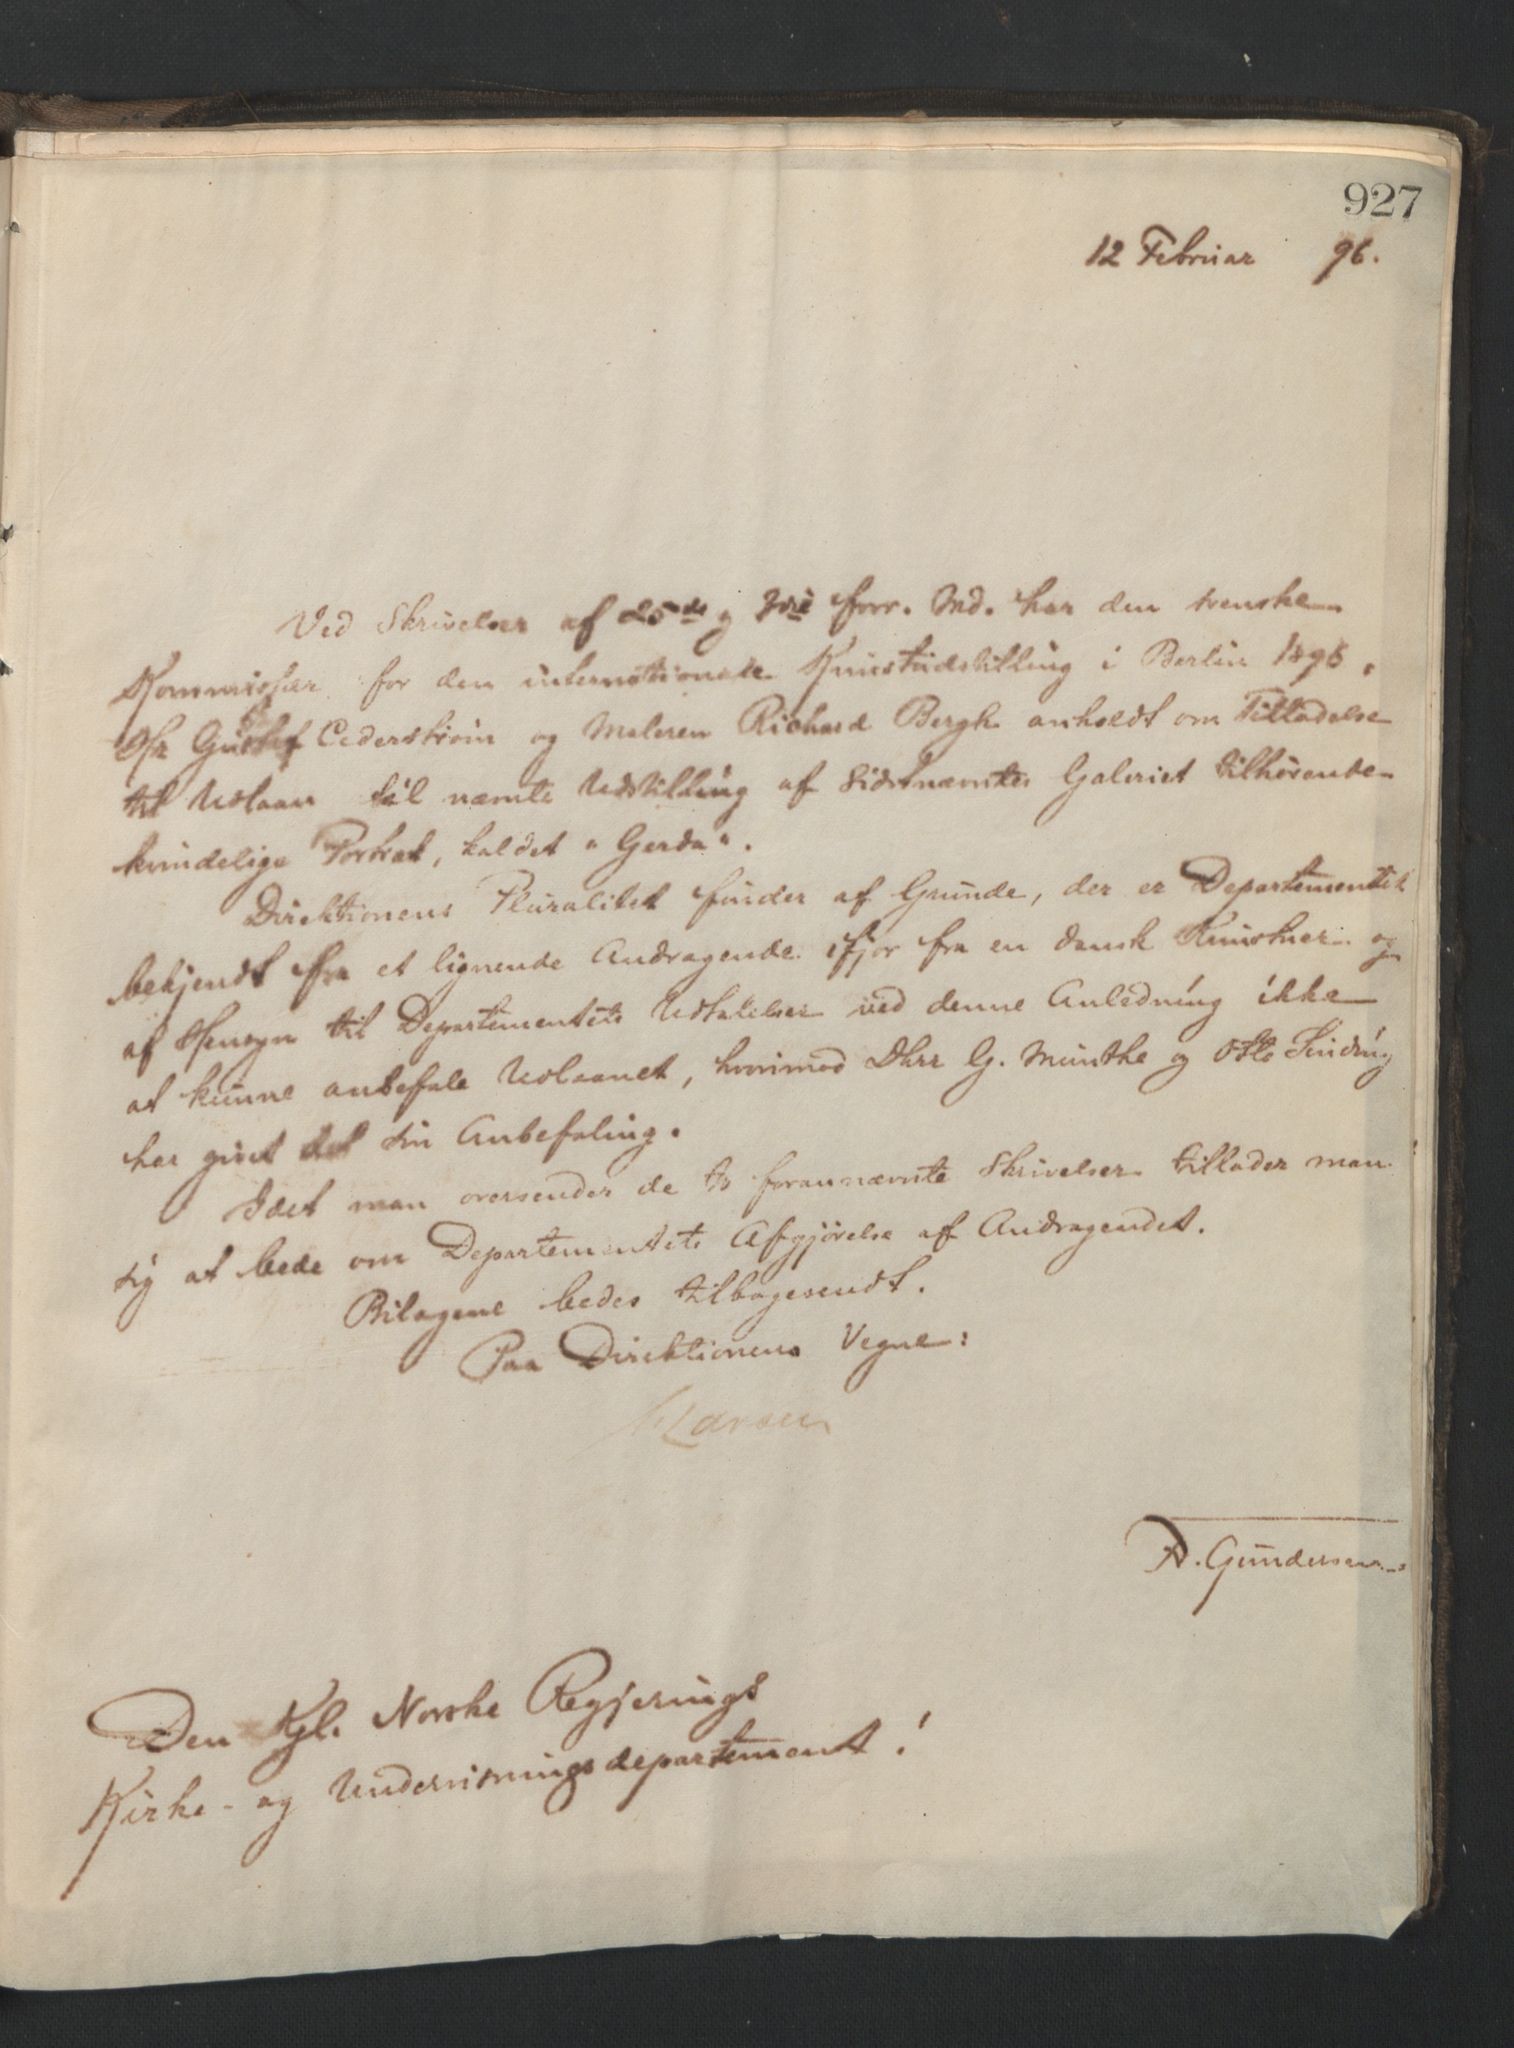 927
12 Februar 96.
Ved Skrivelser af 25de og forr. Md. har den svenske
Kommissær for den internationale Kunstudstilling i Berlin 1896,
Hr Gustaf Cederstrøm og Maleren Richard Bergh anholdt om Tilladelse
til Udlaan til nævnte Udstilling af sidstnævntes Galeriet tilhørende
kvindelige Portræt, kaldet "Gerda".
Direktionens Pluralitet finder af Grunde, der er Departementet
bekjendt fra et lignende Andragende ifjor fra en dansk Kunstner og
af Hensyn til Departementets Udtalelser ved denne Anledning ikke
at kunne anbefale Udlaanet, hvorimod Dhrr G. Munthe og Otto Sinding
har givet det sin Anbefaling.
Idet man oversender de to forannævnte Skrivelser tillader man
sig at bede om Departementets Afgjørelse af Andragendet.
Bilagene bedes tilbagesendt.
Paa Direktionens Vegne:
Larsen
A. Gundersen
Den Kgl. Norske Regjerings
Kirke- og Undervisningsdepartement!